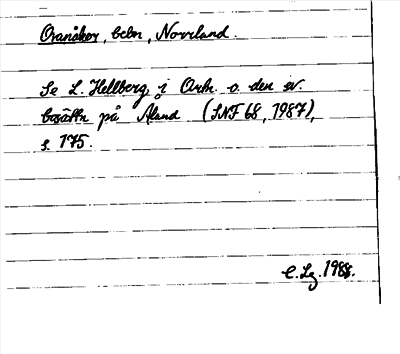 Oranåker, bebn, Norrland.
Se L. Hellberg i Ork. o. den sv.
bosättn på Åland (SNF 68, 1987),
s. 175.
C. Lg. 1988.